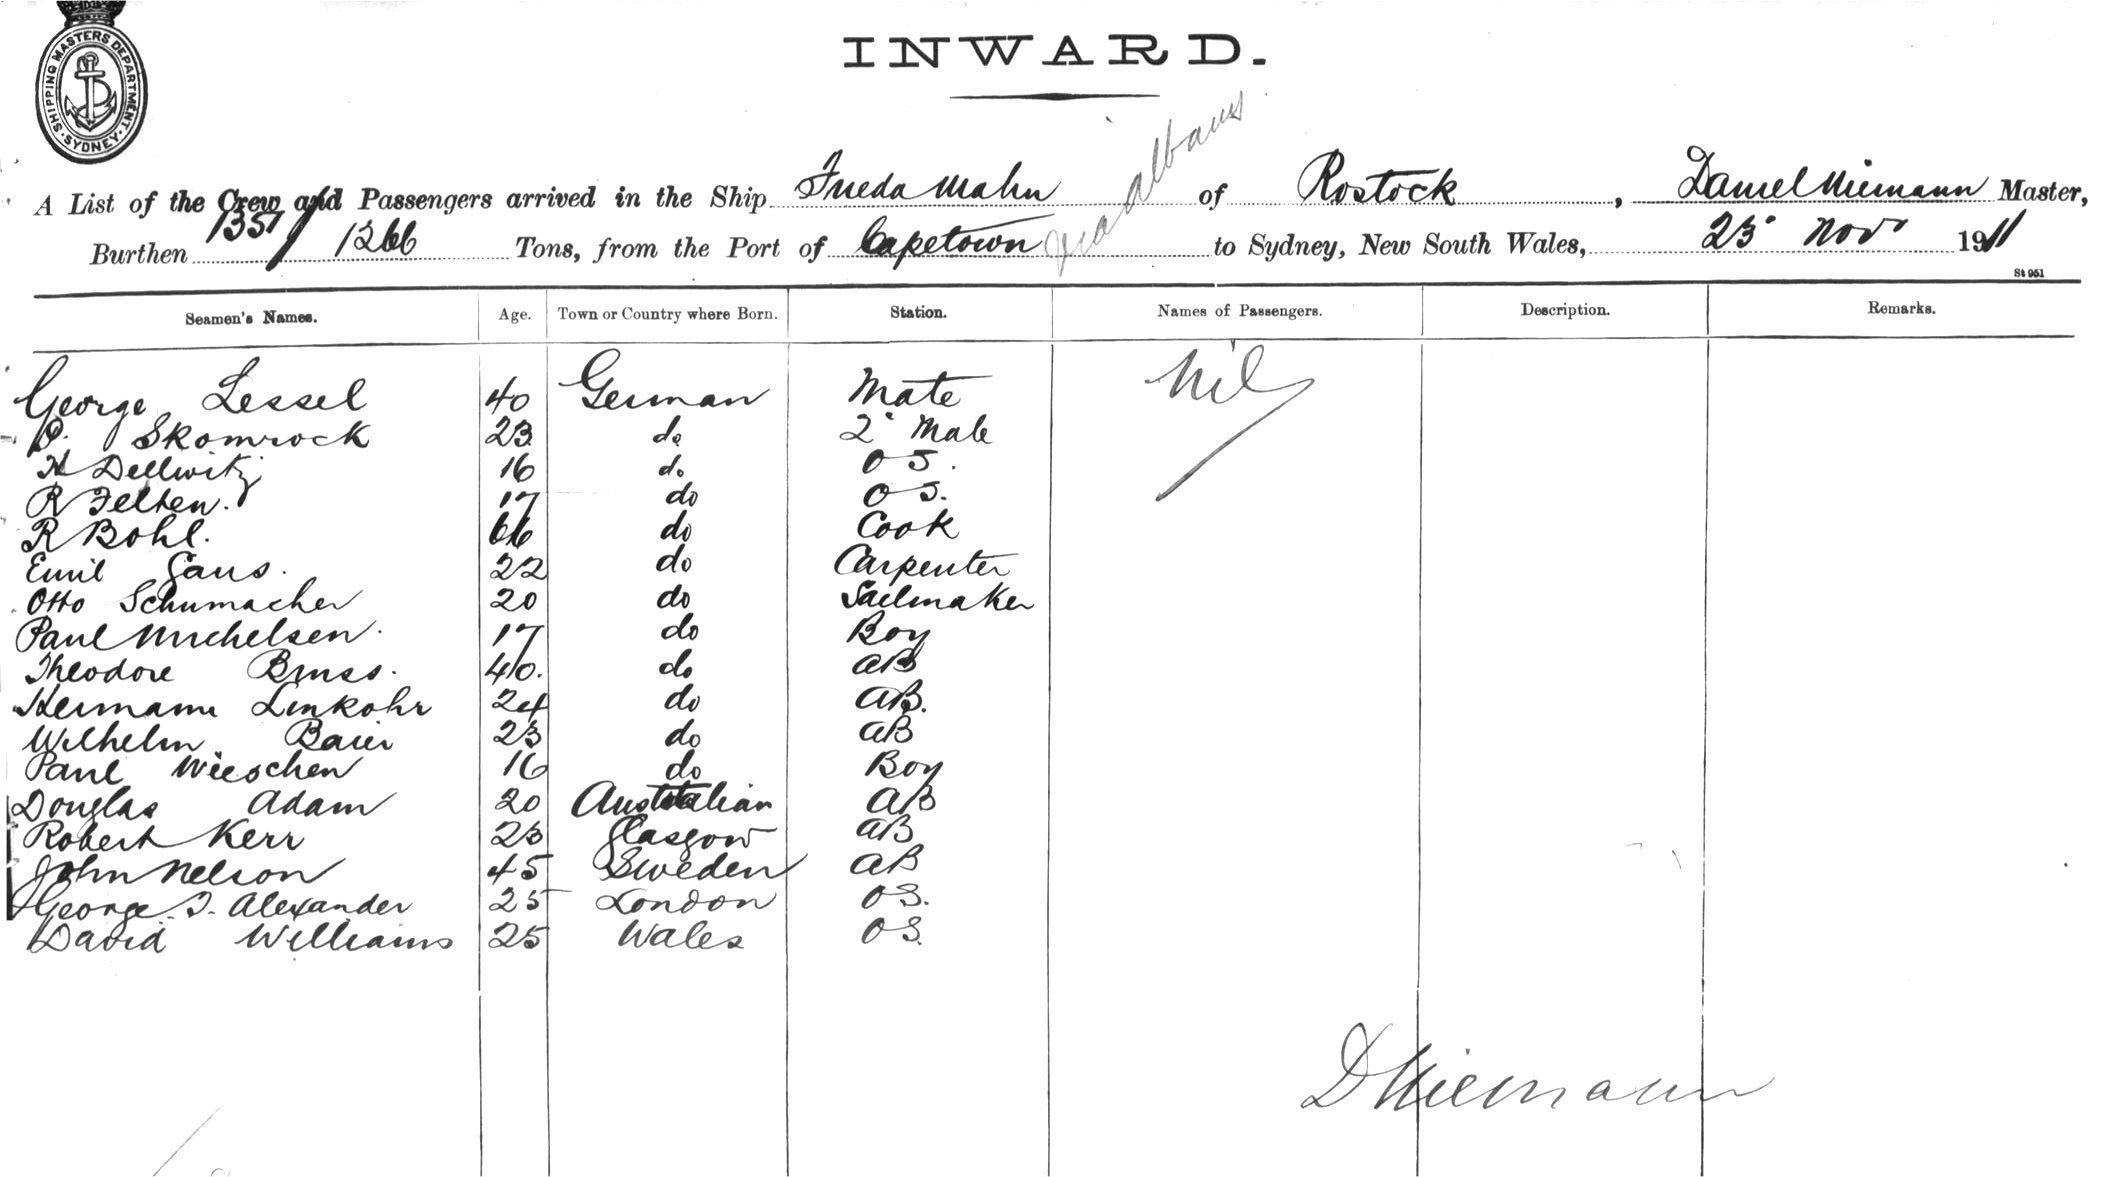 SHIPPING MASTERS DEPARTMENT. SYDNEY
INWARD.
A List of the Crew and Passengers arrived in the Ship Frieda Mahn of Rostock, Daniel Niemann Master,
Burthen 1357/1266 Tons, from the Port of Capetown via Albany to Sydney, New South Wales, 23 Nov 1911
St 951
Seamen's Names. Age. Town or Country where Born. Station. Names of Passengers. Description. Remarks.
George Lessel 40 German Mate Nil
Skomrock 23 do 2 Mate
H Dellwitz 16 do O S.
R Felten. 17 do O S.
R Bohl. 66 do Cook
Emil Gaus. 22 do Carpenter
Otto Schumacher 20 do Sailmaker
Paul Michelsen. 17 do Boy
Theodore Bruss. 40. do AB
Hermann Linkohr 24 do AB.
Wilhelm Baier 23 do AB
Paul Wieschen 16 do Boy
Douglas Adam 20 Australian AB
Robert Kerr 23 Glasgow AB
John Nelson 45 Sweden AB
George. J. Alexander 25 London O S.
David Williams 25 Wales O S.
D Niemann